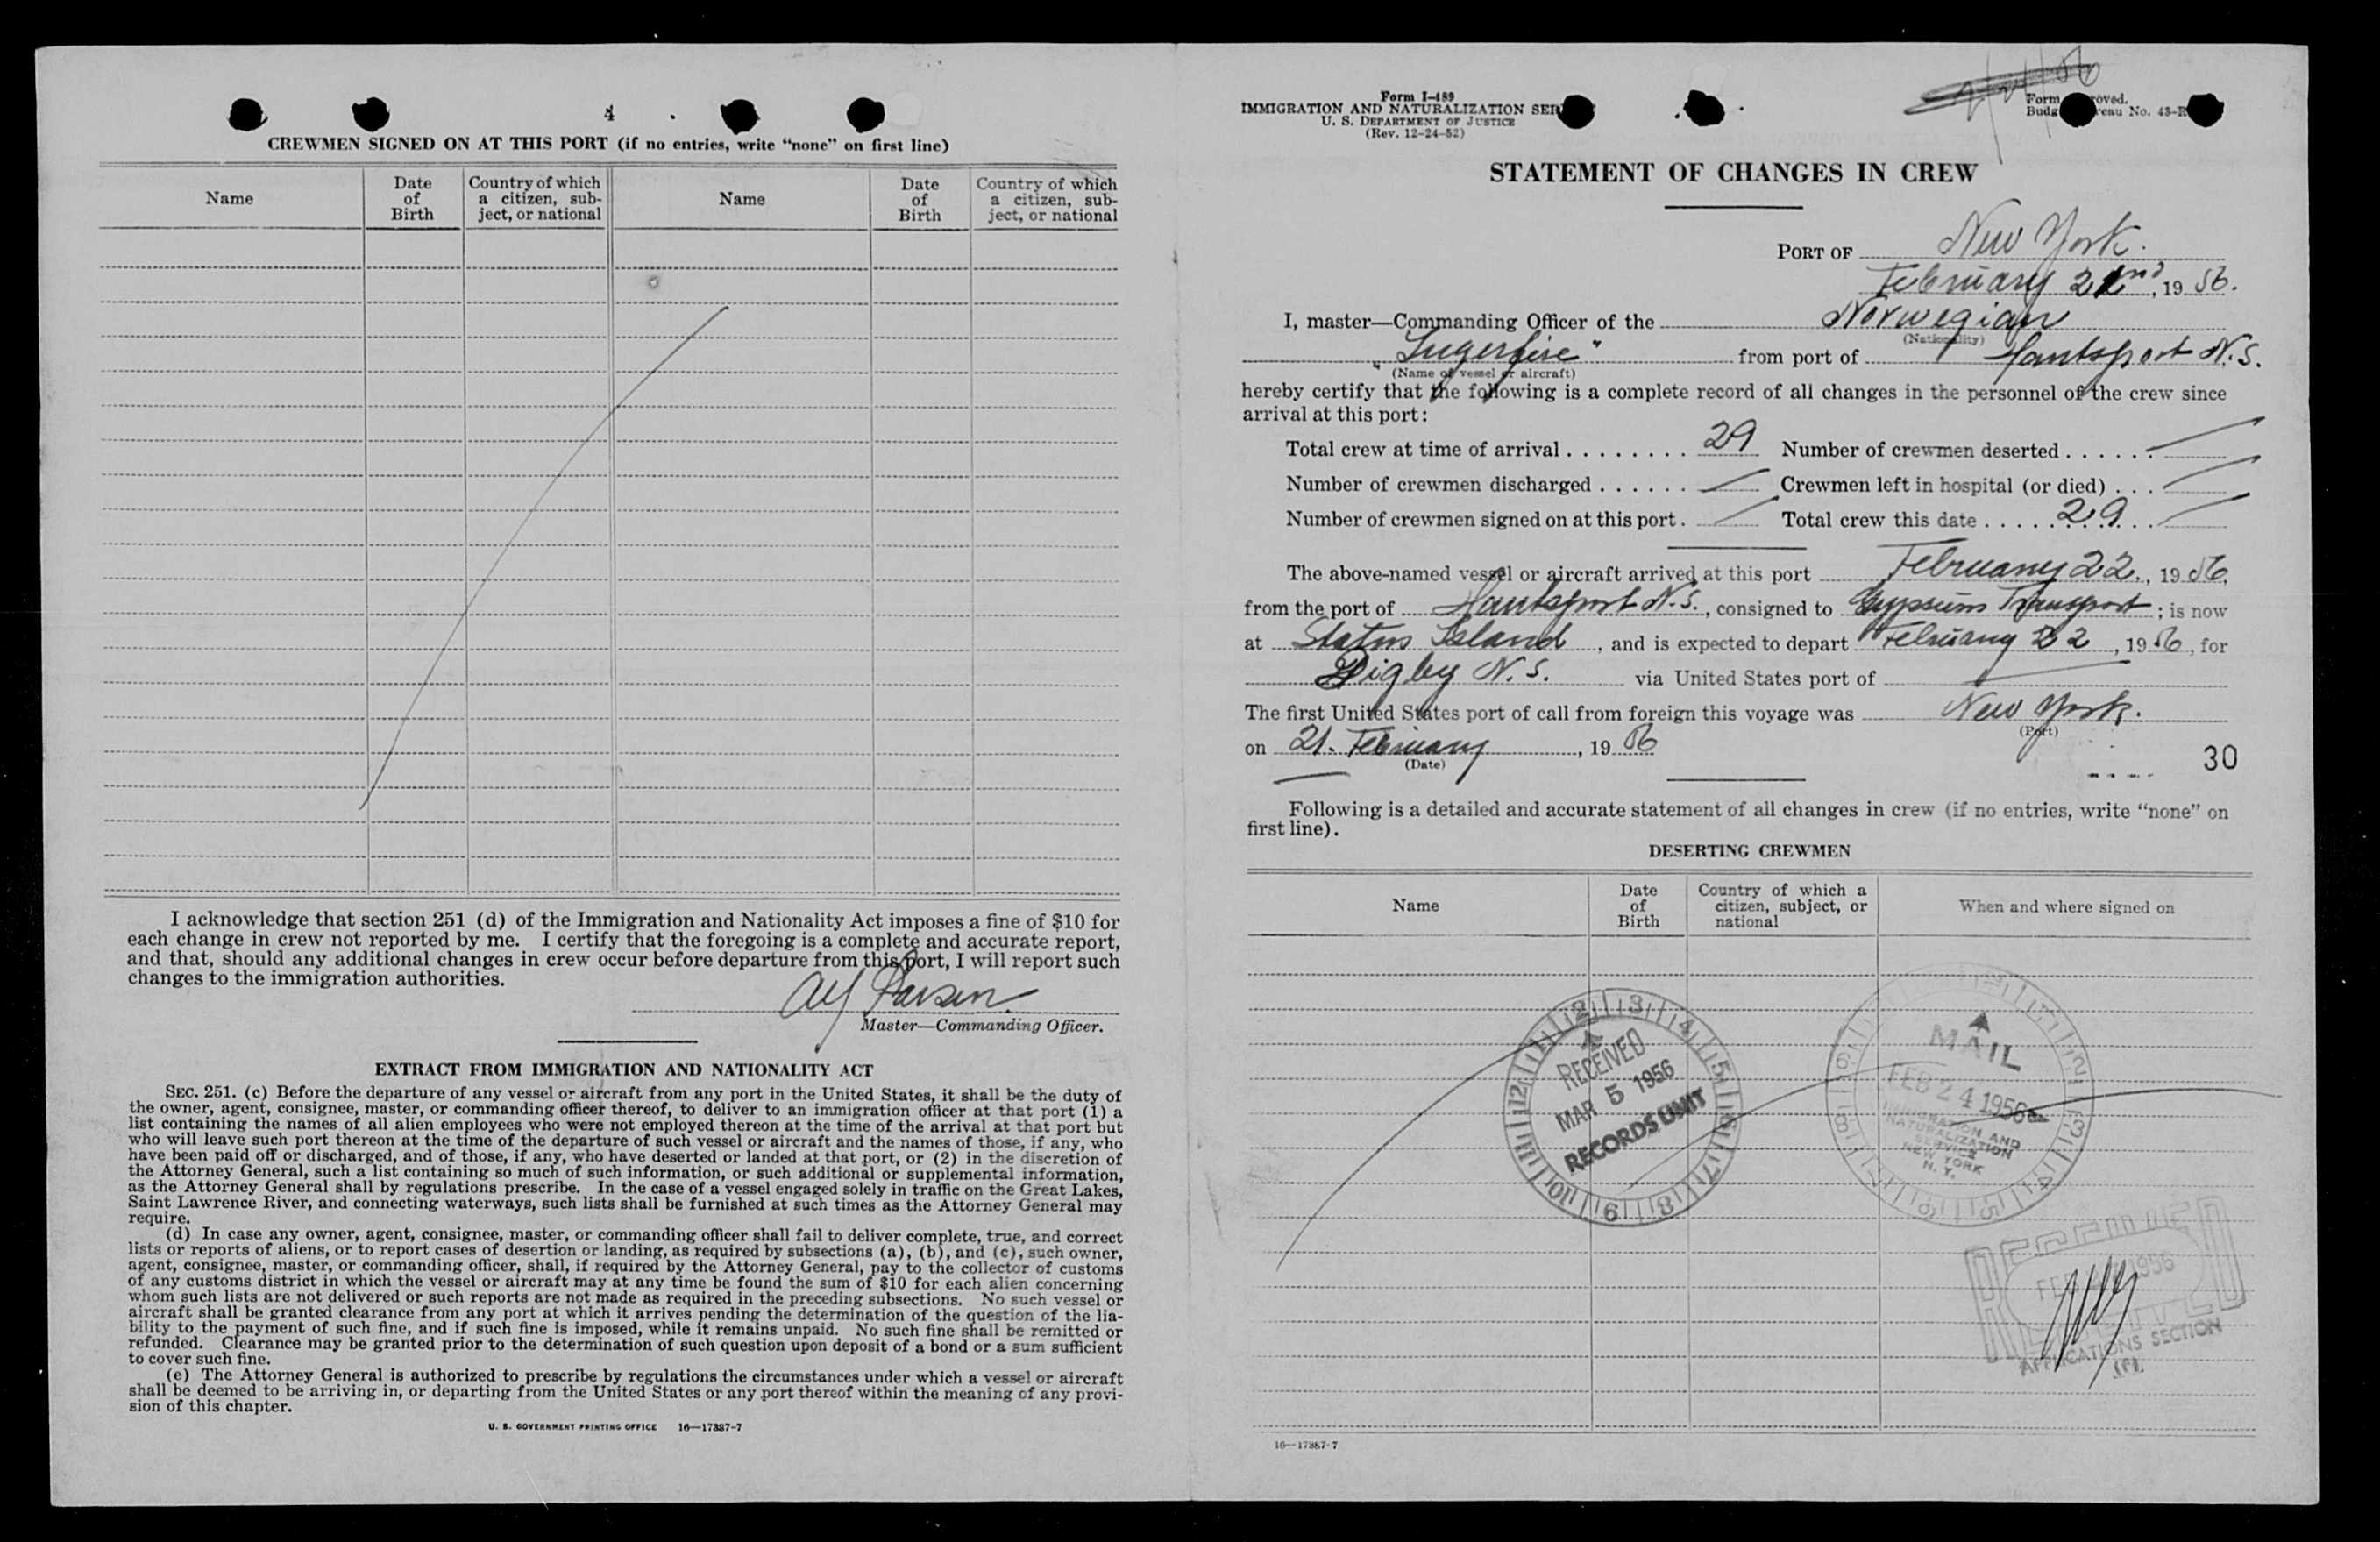 4
CREWMEN SIGNED ON AT THIS PORT (if no entries, write “none” on first line)
Name
Date of Birth
Country of which a citizen, sub-ject, or national
Name
Date of Birth
Country of which a citizen, sub-ject, or national
I acknowledge that section 251 (d) of the Immigration and Nationality Act imposes a fine of $10 for
each change in crew not reported by me. I certify that the foregoing is a complete and accurate report,
and that, should any additional changes in crew occur before departure from this port, I will report such
changes to the immigration authorities.
Alf Larsen
Master—Commanding Officer.
EXTRACT FROM IMMIGRATION AND NATIONALITY ACT
SEC. 251. (c) Before the departure of any vessel or aircraft from any port in the United States, it shall be the duty of
the owner, agent, consignee, master, or commanding officer thereof, to deliver to an immigration officer at that port (1) a
list containing the names of all alien employees who were not employed thereon at the time of the arrival at that port but
who will leave such port thereon at the time of the departure of such vessel or aircraft and the names of those, if any, who
have been paid off or discharged, and of those, if any, who have deserted or landed at that port, or (2) in the discretion of
the Attorney General, such a list containing so much of such information, or such additional or supplemental information,
as the Attorney General shall by regulations prescribe. In the case of a vessel engaged solely in traffic on the Great Lakes,
Saint Lawrence River, and connecting waterways, such lists shall be furnished at such times as the Attorney General may
require.
(d) In case any owner, agent, consignee, master, or commanding officer shall fail to deliver complete, true, and correct
lists or reports of aliens, or to report cases of desertion or landing, as required by subsections (a), (b), and (c), such owner,
agent, consignee, master, or commanding officer, shall, if required by the Attorney General, pay to the collector of customs
of any customs district in which the vessel or aircraft may at any time be found the sum of $10 for each alien concerning
whom such lists are not delivered or such reports are not made as required in the preceding subsections. No such vessel or
aircraft shall be granted clearance from any port at which it arrives pending the determination of the question of the lia-
bility to the payment of such fine, and if such fine is imposed, while it remains unpaid. No such fine shall be remitted or
refunded. Clearance may be granted prior to the determination of such question upon deposit of a bond or a sum sufficient
to cover such fine.
(e) The Attorney General is authorized to prescribe by regulations the circumstances under which a vessel or aircraft
shall be deemed to be arriving in, or departing from the United States or any port thereof within the meaning of any provi-
sion of this chapter.
U. S. GOVERNMENT PRINTING OFFICE 16—17387-7
Form I-489
IMMIGRATION AND NATURALIZATION SER
U. S. DEPARTMENT OF JUSTICE
(Rev. 12-24-52)
Form
Budg No. 43-R
STATEMENT OF CHANGES IN CREW
PORT OF New York.
February 22nd, 19 56.
I, master—Commanding Officer of the Norwegian
(Nationality)
from port of Hantsport N.S.
(Name of vessel or aircraft)
hereby certify that the following is a complete record of all changes in the personnel of the crew since
arrival at this port:
Total crew at time of arrival 29 Number of crewmen deserted
Number of crewmen discharged Crewmen left in hospital (or died)
Number of crewmen signed on at this port. Total crew this date 29
The above-named vessel or aircraft arrived at this port February 22., 19 56,
from the port of Hantsport N.S., consigned to Gypsum Transport; is now
at Staten Island, and is expected to depart February 22, 19 56, for
Digby N.S. via United States port of
The first United States port of call from foreign this voyage was New York.
(Port)
on 21. February, 19 56
(Date)
30
Following is a detailed and accurate statement of all changes in crew (if no entries, write “none” on
first line).
DESERTING CREWMEN
Name
Date of Birth
Country of which a citizen, subject, or national
When and where signed on
RECEIVED
MAR 5 1956
RECORDS UNIT
MAIL
FEB 24 1956
IMMIGRATION AND
NATURALIZATION
SERVICE
NEW YORK
N. Y.
RECEIVED
FEB 1956
APPLICATIONS SECTION
16—17387-7